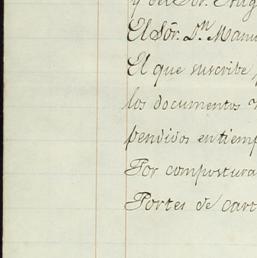 y del Sor. Eug
El Sor. Dn. Manu
El que suscribe
los documentos
pendidos en tiemp
Por compostura
Portes de cart